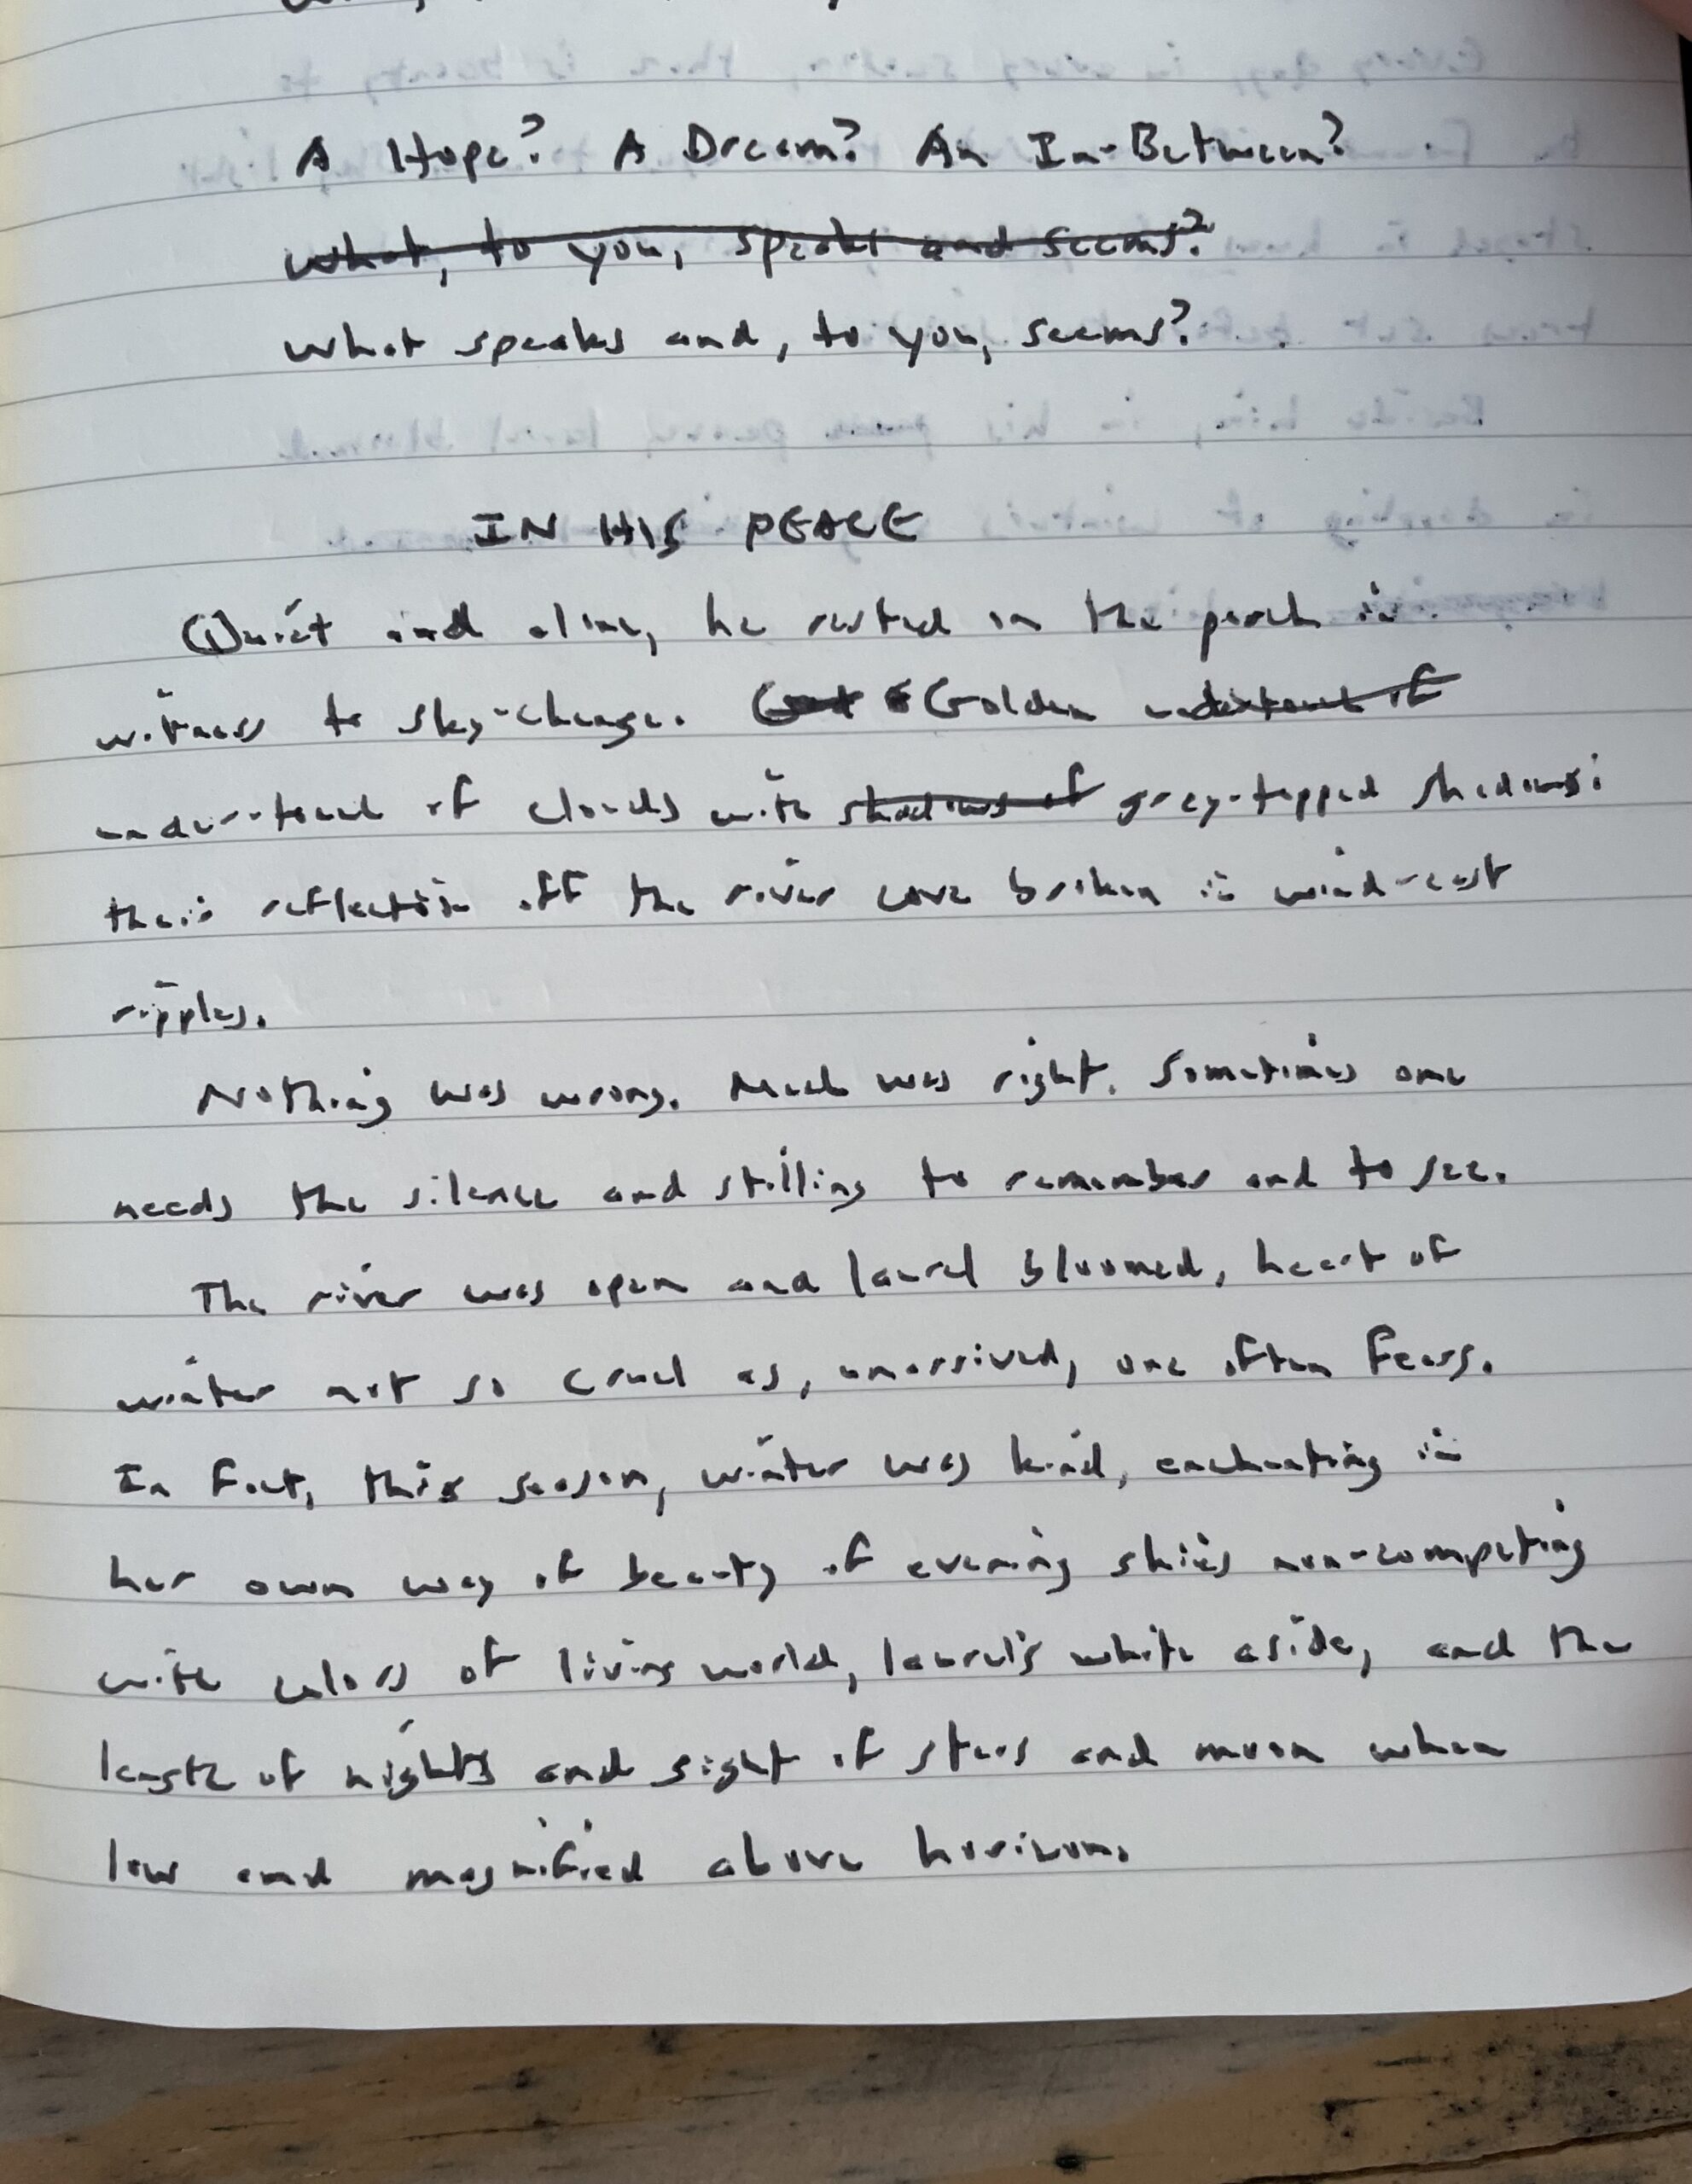 A Hope? A Dream? An In-Between?
What, to you, speaks and seems?
What speaks and, to you, seems?
IN HIS PEACE
Quiet and alone, he rested on the porch in
witness to sky-change. Golden
under-touch of clouds with shadows of grey-topped shadows:
their reflection off the river cove broken in wind-cast
ripples.
Nothing was wrong. Much was right. Sometimes one
needs the silence and stilling to remember and to see.
The river was open and laurel bloomed, heart of
winter not so cruel as, unarrived, one often fears.
In fact, this season, winter was kind, enchanting in
her own way of beauty of evening skies non-competing
with colors of living world, laurel's white aside, and the
length of nights and sight of stars and moon when
low and magnified above horizon.